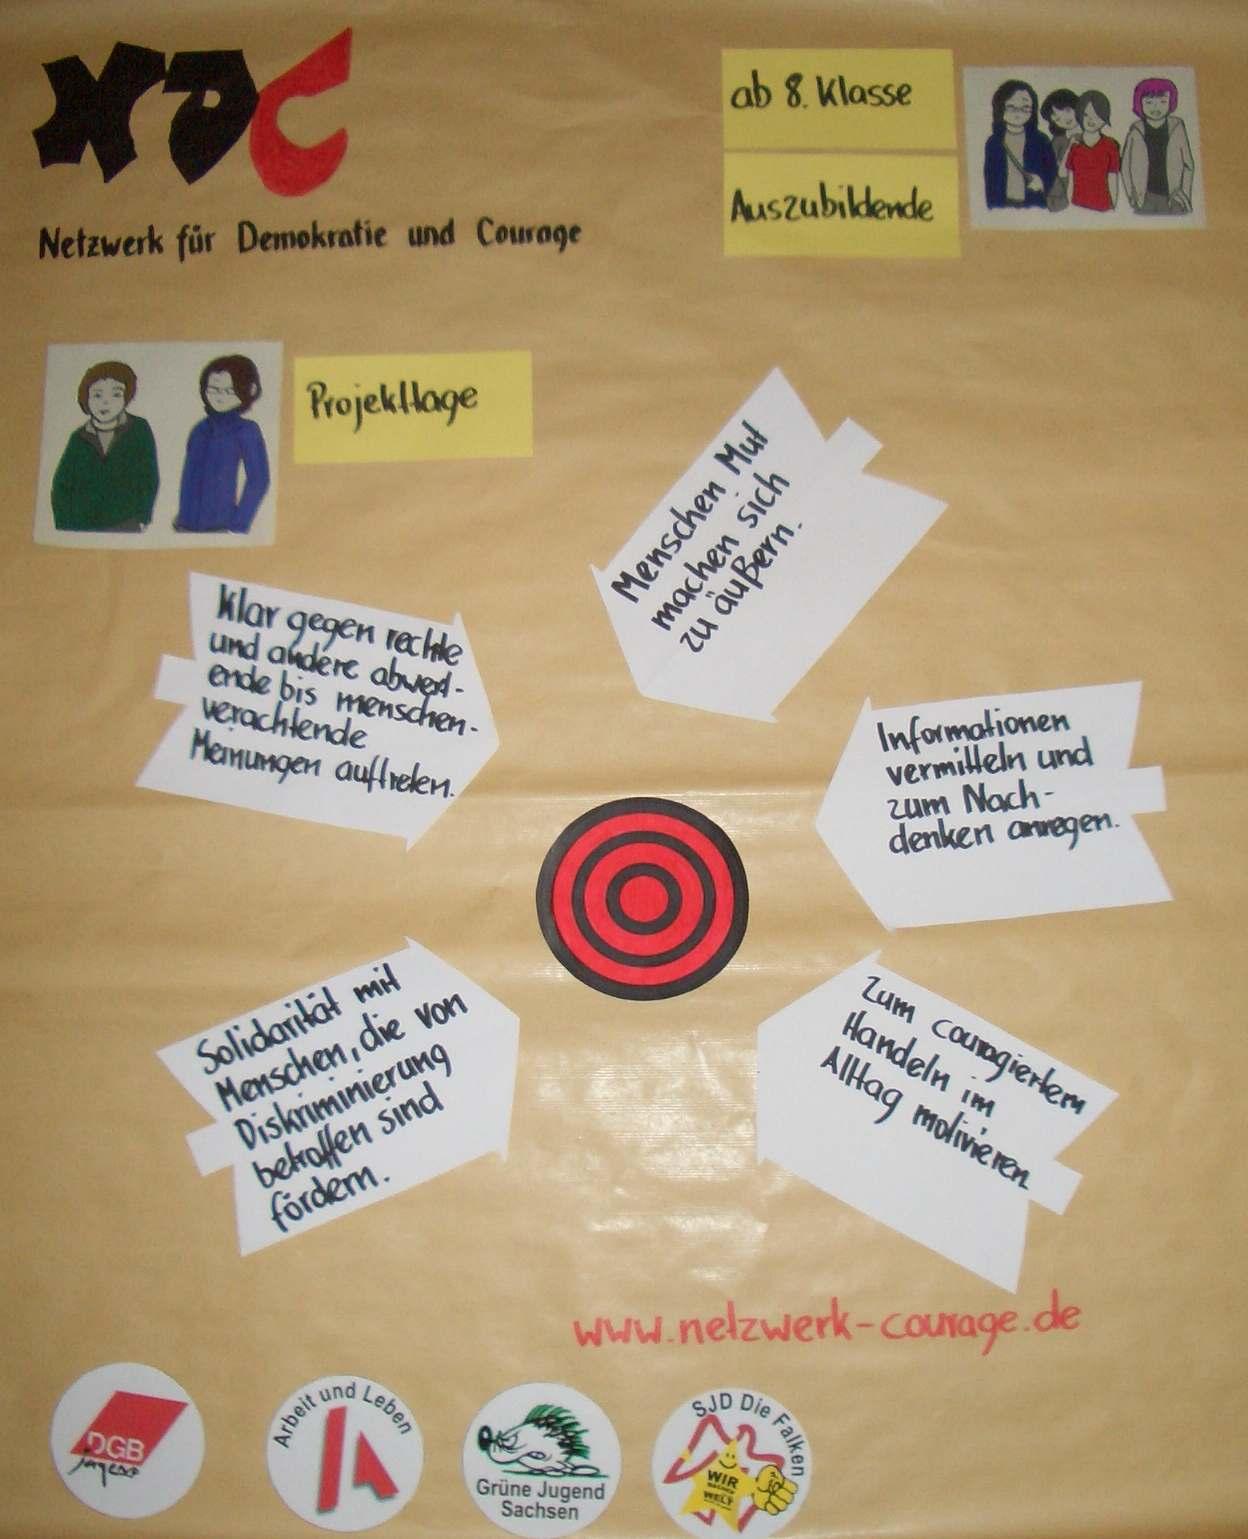 NDC
Netzwerk für Demokratie und Courage
ab 8. Klasse
Auszubildende
Projekttage
Menschen Mut
machen sich
zu äußern.
Klar gegen rechte
und andere abwert-
ende bis menschen-
verachtende
Meinungen auftreten.
Informationen
vermitteln und
zum Nach-
denken anregen.
Solidarität mit
Menschen, die von
Diskriminierung
betroffen sind
fördern.
Zum couragiertem
Handeln im
Alltag motivieren
www.netzwerk-courage.de
DGB
jugend
Arbeit und Leben
Grüne Jugend
Sachsen
SJD Die Falken
WIR
WELT